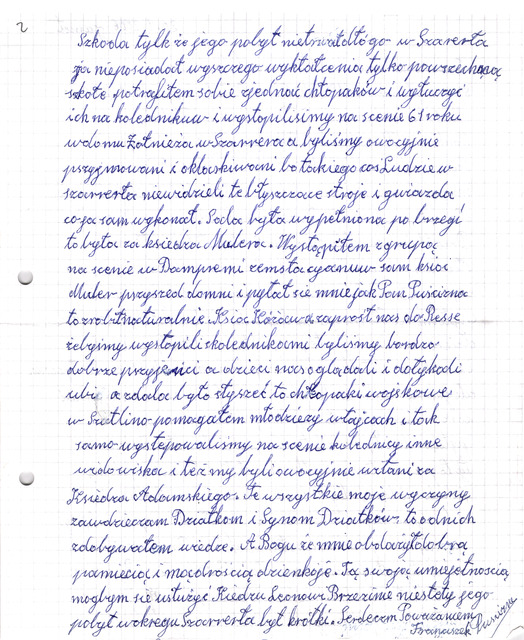 2
Szkoda tylk że jego pobyt nietrwał dłógo w Szarerła
ja nieposiadał wyszczego wykształcenia tylko powszechną
szkołe potrafiłem sobie zjednać chłopaków i wyłuczyć
ich na kolednikuw i wystopiliśmy na scenie 61 roku
w domu Żołnieża w Szarrera a byliśmy owocyjnie
przyjmowani i oklaskiwani bo takiego cos Ludzie w
szarrerła niewidzieli te błyszczace stroje i gwiazda
co ja sam wykonał. Sala była wypełniona po brzegi
to była za ksiedza Mulera. Wystąpiłem z grupą
na scenie w Dampremi zemsta cyganuw sam ksiac
Muler przyszed domni i pytał sie mnie jak Pan Puscizna
to zrobił naturalnie. Ksiac zaprosił nas do Resse
żebyimy wystopili skolednikami byliśmy bardzo
dobrze przyjenci a dzieci nas oglądali i dotykali
ubi a zdala było słyszeć to chłopaki wojskowe
w Szatlino pomagałem młodzieży w Jajcach i tak
samo występowaliśmy na scenie kolednicy inne
widowiska i też my byli owocyjnie witani za
Ksiedza Adamskiego. Te wszystkie moje wyczyny
zawdzieczam Dziatkom i Synom Dziatków, to od nich
zdobywałem wiedze. A Bogu że mnie obdażył dobra
pamiecią i mądrością dzienkoję. Tą swoją umiejetnoscią
mogbym sie usłużyć Kiedzu Leonowi Brzezine niestoty jego
pobyt w okregu Szarrerła był krótki. Serdeczn Poważaniem
Franciszek Puscizna